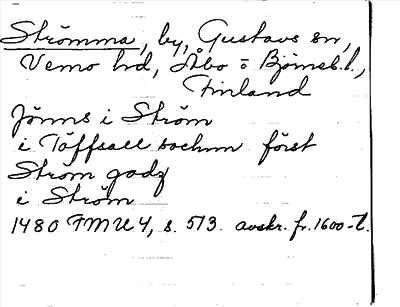 Strömma, by, Gustavs sn,
Vemo hrd, Åbo o Björneb. l.,
Finland
Jönns i Ström
i Töffsall sochnn först
Strom godz
i Ström
1480 FMU 4, s. 513. avskr. fr. 1600-t.